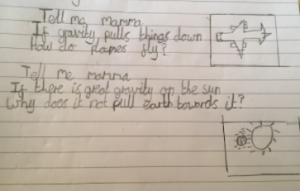 Tell me mamma
If gravity pulls things down
How do planes fly?
Tell me mamma
If there is great gravity on the sun
Why does it not pull earth towards it?